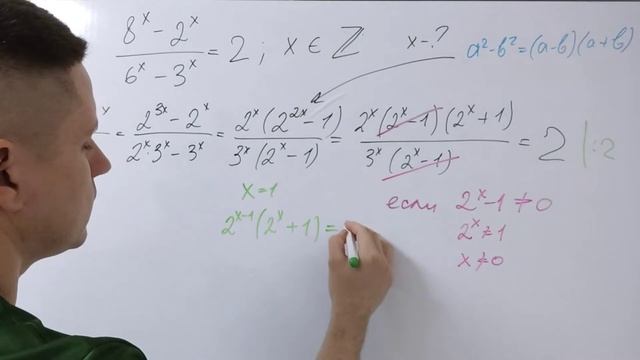 (8ˣ - 2ˣ)/(6ˣ - 3ˣ) = 2 ; x ∈ ℤ x - ? a² - b² = (a-b)(a+b)
ˣ = (2³ˣ - 2ˣ)/(2ˣ·3ˣ - 3ˣ) = (2ˣ(2²ˣ - 1))/(3ˣ(2ˣ - 1)) = (2ˣ(2ˣ - 1)(2ˣ + 1))/(3ˣ(2ˣ - 1)) = 2 |:2
x = 1
2ˣ⁻¹(2ˣ + 1) =
если 2ˣ - 1 ≠ 0
2ˣ ≠ 1
x ≠ 0